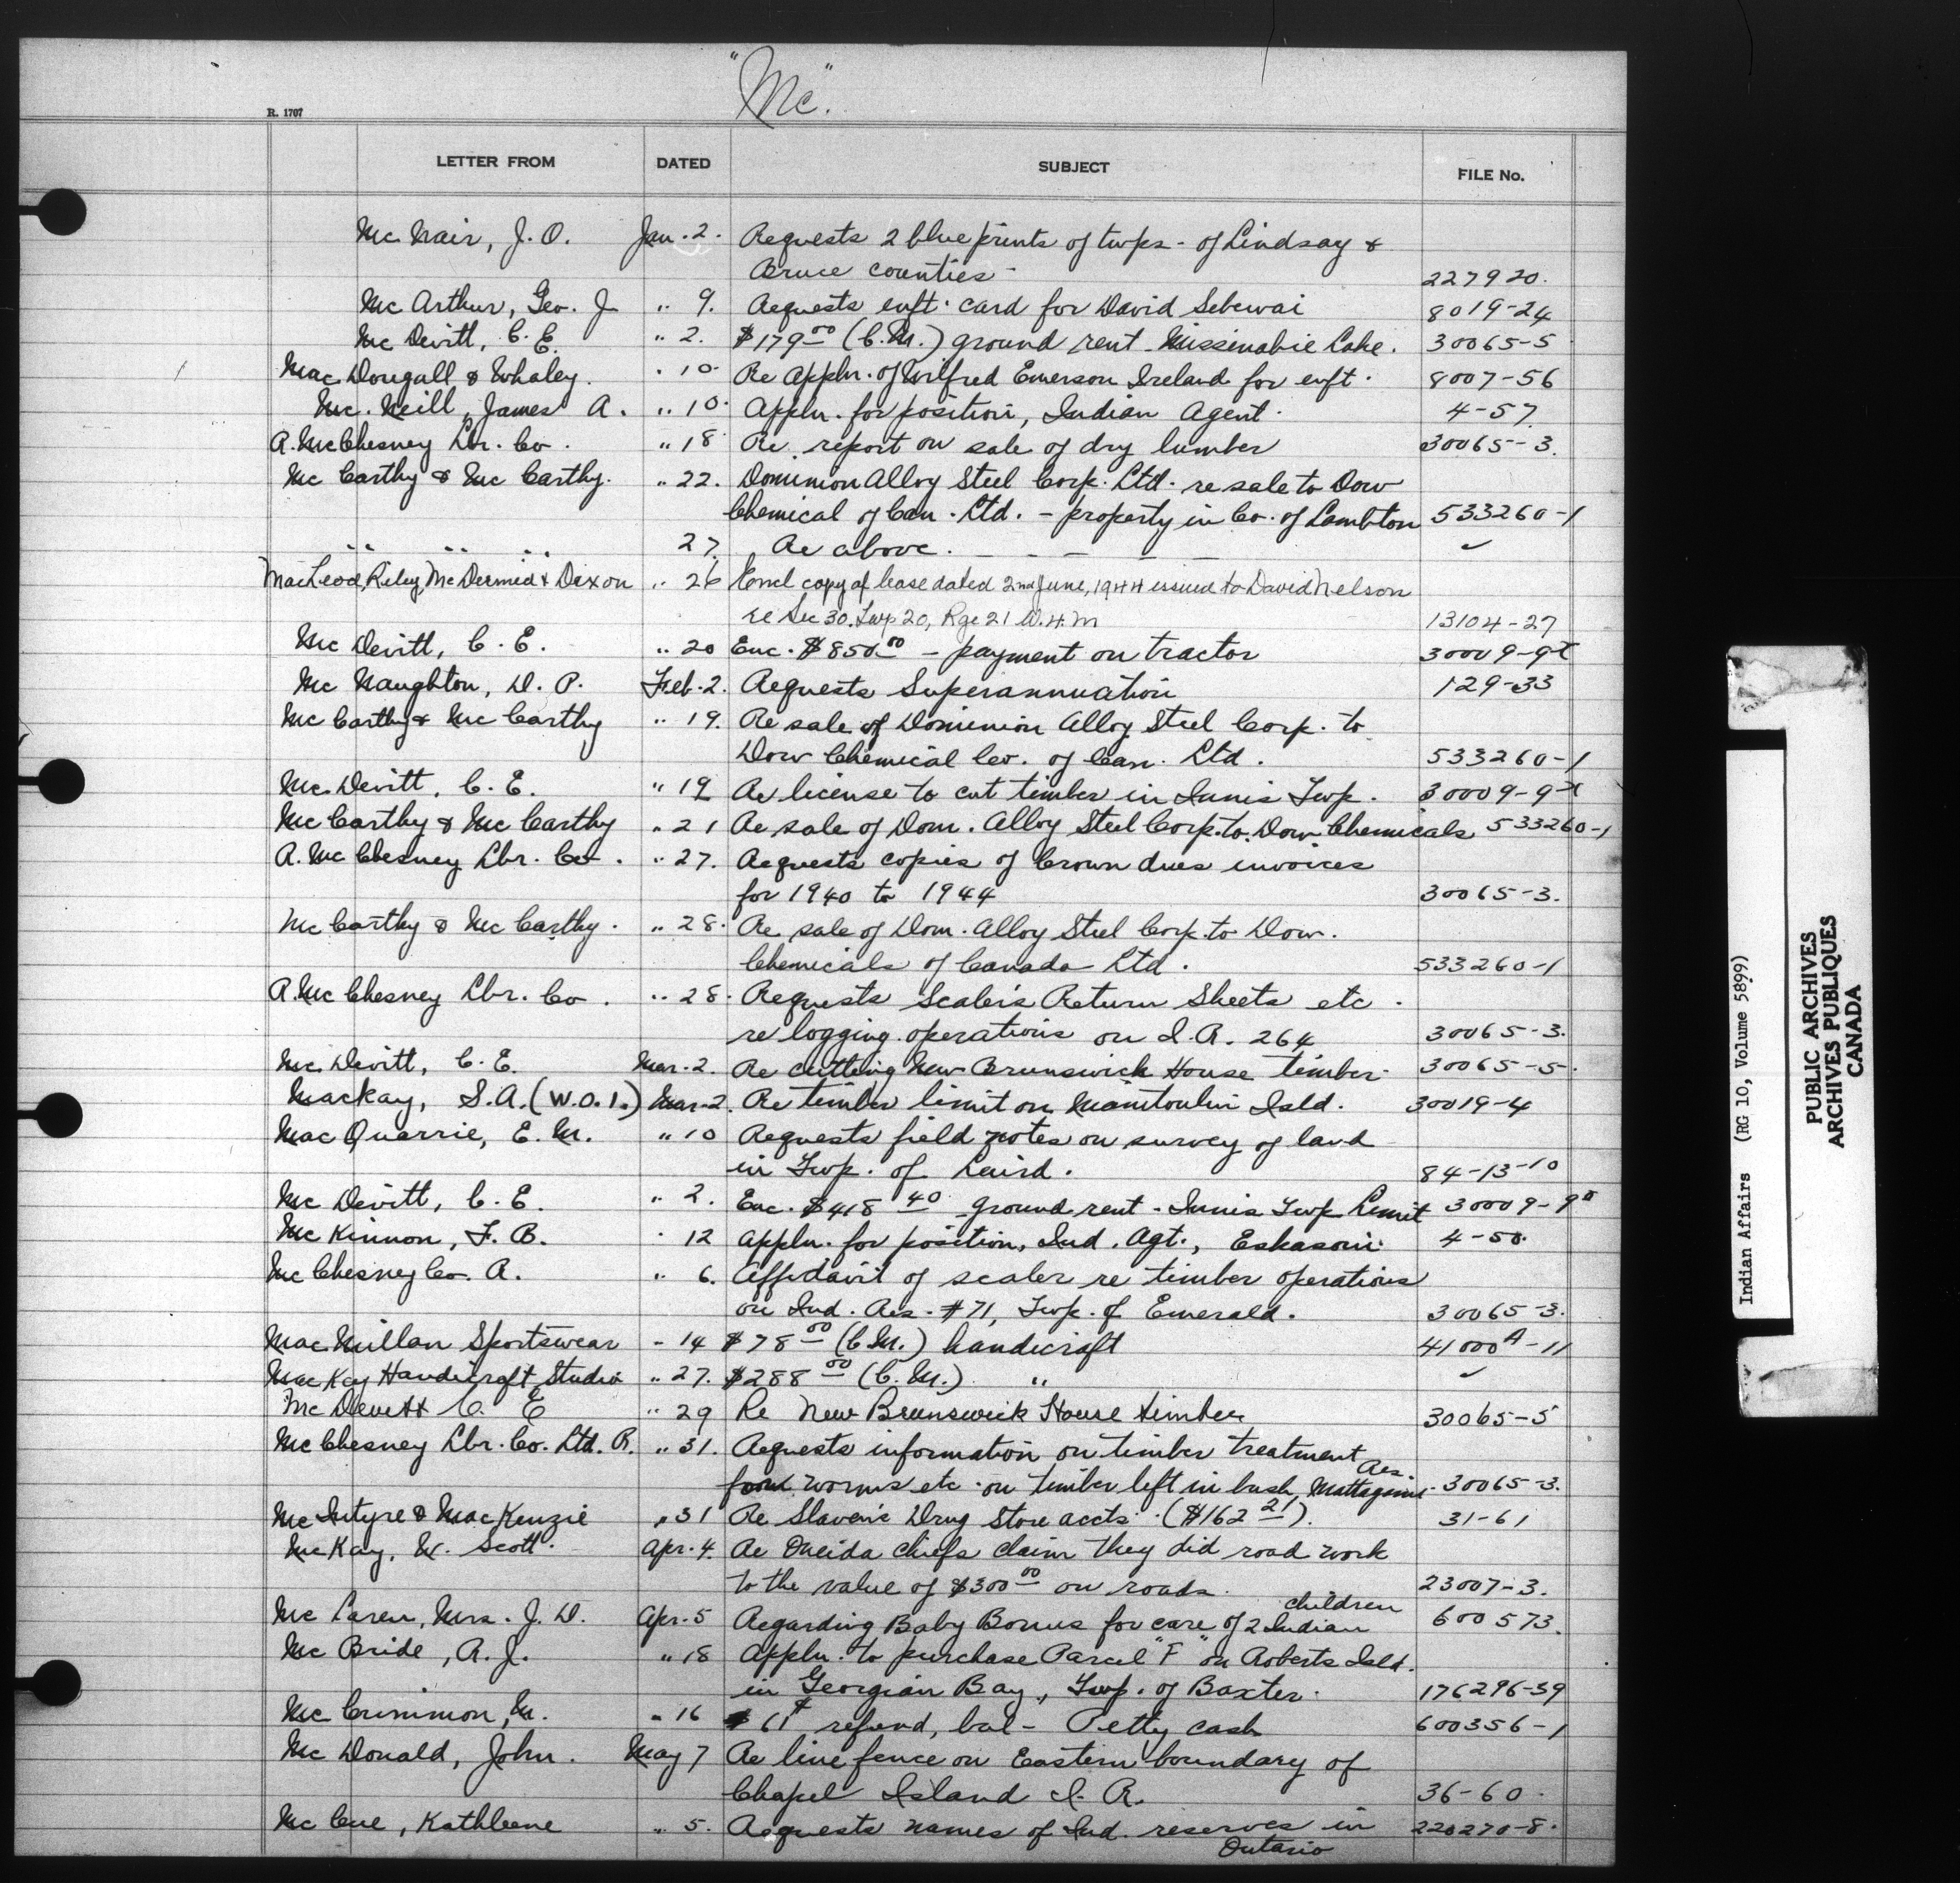 "Mc"
R. 1707
LETTER FROM DATED SUBJECT FILE No.
McNair, J. O. Jan. 2. Requests 2 blue prints of twps. of Lindsay &
Bruce counties - 227920.
McArthur, Geo. J " 9. Requests enft. card for David Sebewai 8019-24
McDevitt, C. E. " 2. $179.00 (C.M.) ground rent - Missinabie Lake. 30065-5
MacDougall & Whaley. " 10. Re Appln. of Wilfred Emerson Ireland for enft. 8007-56
Mc.Neill, James A. " 10. Appln. for position, Indian Agent. 4-57
A. McChesney Lbr. Co. " 18. Re report on sale of dry lumber 30065-3.
McCarthy & McCarthy. " 22. Dominion Alloy Steel Corp. Ltd. re sale to Dow
Chemical of Can. Ltd. - property in Co. of Lambton 533260-1
" " " 27. Re above. - - - - ✓
MacLeod, Riley, McDermid & Dixon " 26 Encl copy of lease dated 2nd June, 1944 issued to David Nelson
re Sec 30. Twp 20, Rge 21 W.4.M 13104-27
McDevitt, C. E. " 20 Enc. $850.00 - payment on tractor 30009-9x
McNaughton, D. P. Feb. 2. Requests Superannuation 129-33
McCarthy & McCarthy " 19. Re sale of Dominion Alloy Steel Corp. to
Dow Chemical Co. of Can. Ltd. 533260-1
McDevitt, C. E. " 19 Re license to cut timber in Innis Twp. 30009-9x
McCarthy & McCarthy " 21 Re sale of Dom. Alloy Steel Corp. to Dow Chemicals 533260-1
A. McChesney Lbr. Co. " 27. Requests copies of Crown dues invoices
for 1940 to 1944 30065-3.
McCarthy & McCarthy. " 28. Re sale of Dom. Alloy Steel Corp. to Dow.
Chemicals of Canada Ltd. 533260-1
A. McChesney Lbr. Co. " 28. Requests Scaler's Return Sheets etc.
re logging operations on I.R. 264 30065-3.
McDevitt, C. E. Mar. 2. Re cutting New Brunswick House timber. 30065-5.
Mackay, S.A. (W.O.1.) Mar. 2. Re timber limit on Manitoulin Isld. 30019-4
MacQuarrie, E. M. " 10 Requests field notes on survey of land
in Twp. of Laird. 84-13-10
McDevitt, C. E. " 2. Enc. $418.40 ground rent - Innis Twp Limit 30009-9x
McKinnon, F. B. " 12 Appln. for position, Ind. Agt., Eskasoni. 4-50.
McChesney Co. A. " 6. Affidavit of scaler re timber operations
on Ind. Res. #71, Twp. of Emerald. 30065-3.
MacMillan Sportswear " 14 $78.00 (C.M.) handicraft 41000A-11
MacKay Handicraft Studio " 27. $288.00 (C.M.) " ✓
McDevitt C. E " 29 Re New Brunswick House timber 30065-5
McChesney Lbr. Co. Ltd. A. " 31. Requests information on timber treatment
for worms etc. on timber left in bush, Mattagami Res. 30065-3.
McIntyre & MacKenzie " 31 Re Slaven's Drug Store accts. ($162.21). 31-61
McKay, W. Scott. Apr. 4. Re Oneida chiefs claim they did road work
to the value of $300.00 on roads. 23007-3.
McLaren, Mrs. J. D. Apr. 5 Regarding "Baby Bonus" for care of 2 Indian children 600573.
McBride, A. J. " 18 Appln. to purchase Parcel "F" on Roberts Isld.
in Georgian Bay, Twp. of Baxter. 176296-39
McCrimmon, M. " 16 61¢ refund, bal - Petty cash 600356-1
McDonald, John. May 7 Re line fence on Eastern boundary of
Chapel Island I. R. 36-60.
McCue, Kathleene " 5. Requests names of Ind. reserves in
Ontario 220270-8.
Indian Affairs (RG 10, Volume 5899)
PUBLIC ARCHIVES
ARCHIVES PUBLIQUES
CANADA